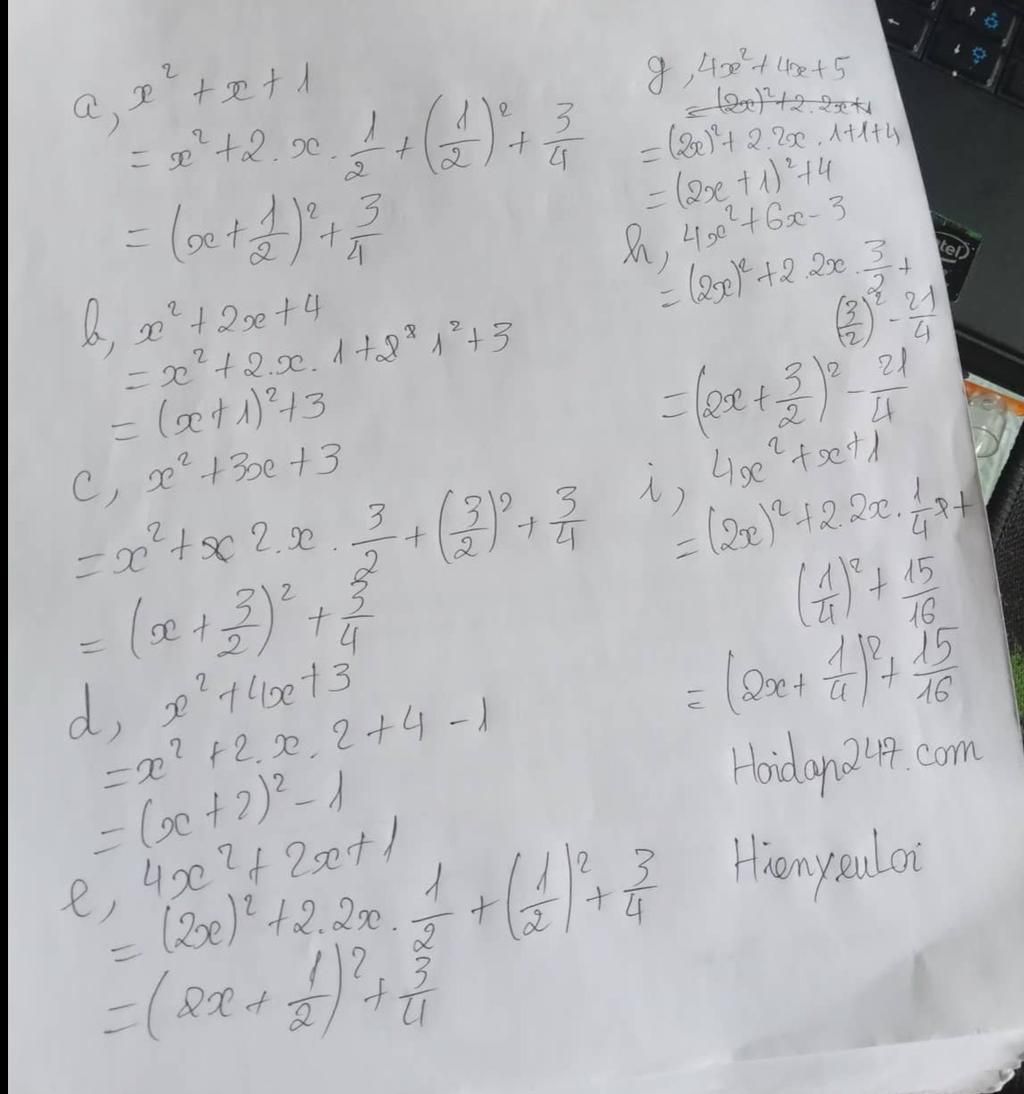 a, x² + x + 1
= x² + 2 . x . 1/2 + (1/2)² + 3/4
= (x + 1/2)² + 3/4
b, x² + 2x + 4
= x² + 2.x. 1 + 1² + 3
= (x+1)² + 3
c, x² + 3x + 3
= x² + 2.x . 3/2 + (3/2)² + 3/4
= (x + 3/2)² + 3/4
d, x² + 4x + 3
= x² + 2.x. 2 + 4 - 1
= (x + 2)² - 1
e, 4x² + 2x + 1
= (2x)² + 2.2x . 1/2 + (1/2)² + 3/4
= (2x + 1/2)² + 3/4
g, 4x² + 4x + 5
= (2x)² + 2. 2x + 1
= (2x)² + 2.2x . 1+1+4
= (2x + 1)² + 4
h, 4x² + 6x - 3
= (2x)² + 2.2x . 3/2 +
(3/2)² - 21/4
= (2x + 3/2)² - 21/4
i, 4x² + x + 1
= (2x)² + 2.2x . 1/4 +
(1/4)² + 15/16
= (2x + 1/4)² + 15/16
Hoidap247.com
Hienyeuloi